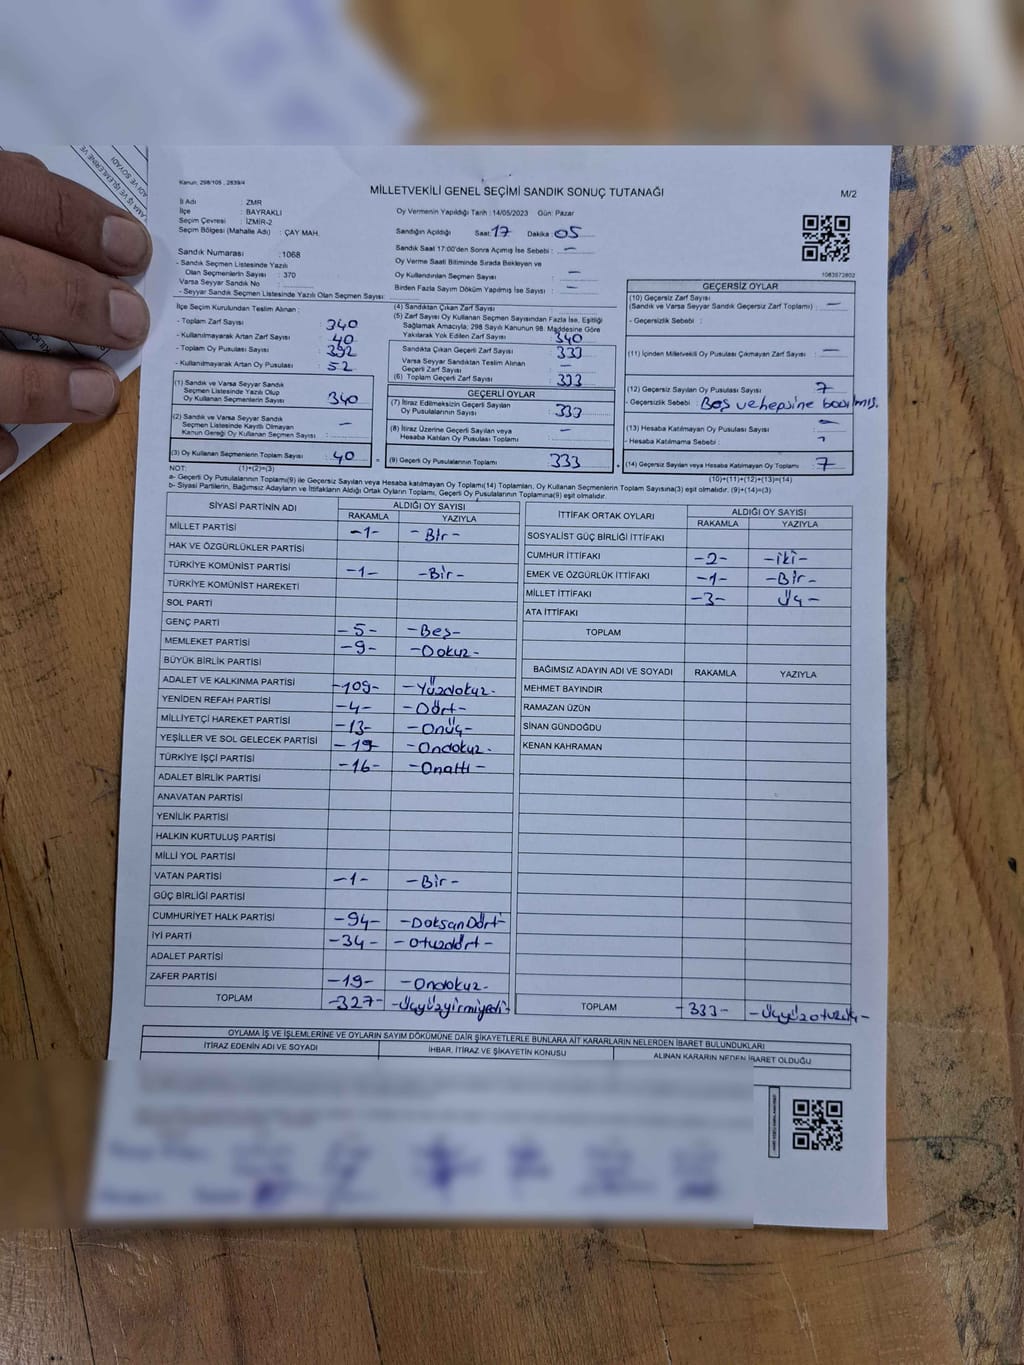 Kanun: 298/105 , 2839/4
MİLLETVEKİLİ GENEL SEÇİMİ SANDIK SONUÇ TUTANAĞI
M/2
İl Adı : ZMR
İlçe : BAYRAKLI
Seçim Çevresi : İZMİR-2
Seçim Bölgesi (Mahalle Adı) : ÇAY MAH.
Sandık Numarası :1068
- Sandık Seçmen Listesinde Yazılı
Olan Seçmenlerin Sayısı : 370
Varsa Seyyar Sandık No :
- Seyyar Sandık Seçmen Listesinde Yazılı Olan Seçmen Sayısı:
Oy Vermenin Yapıldığı Tarih : 14/05/2023 Gün: Pazar
Sandığın Açıldığı Saat: 17 Dakika 05
Sandık Saat 17:00'den Sonra Açımış İse Sebebi : —
Oy Verme Saati Bitiminde Sırada Bekleyen ve
Oy Kullandırılan Seçmen Sayısı : —
Birden Fazla Sayım Döküm Yapılmış İse Sayısı : —
1083972802
İlçe Seçim Kurulundan Teslim Alınan :
- Toplam Zarf Sayısı : 340
- Kullanılmayarak Artan Zarf Sayısı : 40
- Toplam Oy Pusulası Sayısı : 392
- Kullanılmayarak Artan Oy Pusulası : 52
(1) Sandık ve Varsa Seyyar Sandık
Seçmen Listesinde Yazılı Olup
Oy Kullanan Seçmenlerin Sayısı : 340
(2) Sandık ve Varsa Seyyar Sandık
Seçmen Listesinde Kayıtlı Olmayan
Kanun Gereği Oy Kullanan Seçmen Sayısı : —
(3) Oy Kullanan Seçmenlerin Toplam Sayısı : 40
(4) Sandıktan Çıkan Zarf Sayısı :
(5) Zarf Sayısı Oy Kullanan Seçmen Sayısından Fazla İse, Eşitliği
Sağlamak Amacıyla; 298 Sayılı Kanunun 98. Maddesine Göre
Yakılarak Yok Edilen Zarf Sayısı : 340
Sandıkta Çıkan Geçerli Zarf Sayısı : 333
Varsa Seyyar Sandıktan Teslim Alınan
Geçerli Zarf Sayısı : —
(6) Toplam Geçerli Zarf Sayısı : 333
GEÇERLİ OYLAR
(7) İtiraz Edilmeksizin Geçerli Sayılan
Oy Pusulalarının Sayısı : 333
(8) İtiraz Üzerine Geçerli Sayılan veya
Hesaba Katılan Oy Pusulası Toplamı : —
= (9) Geçerli Oy Pusulalarının Toplamı : 333
GEÇERSİZ OYLAR
(10) Geçersiz Zarf Sayısı
(Sandık ve Varsa Seyyar Sandık Geçersiz Zarf Toplamı) : —
- Geçersizlik Sebebi :
(11) İçinden Milletvekili Oy Pusulası Çıkmayan Zarf Sayısı : —
(12) Geçersiz Sayılan Oy Pusulası Sayısı : 7
- Geçersizlik Sebebi : Boş ve hepsine basılmış.
(13) Hesaba Katılmayan Oy Pusulası Sayısı : —
- Hesaba Katılmama Sebebi :
+ (14) Geçersiz Sayılan veya Hesaba Katılmayan Oy Toplamı : 7
NOT: (1)+(2)=(3)
(10)+(11)+(12)+(13)=(14)
a- Geçerli Oy Pusulalarının Toplamı(9) ile Geçersiz Sayılan veya Hesaba Katılmayan Oy Toplamı(14) Toplamları, Oy Kullanan Seçmenlerin Toplam Sayısına(3) eşit olmalıdır. (9)+(14)=(3)
b- Siyasi Partilerin, Bağımsız Adayların ve İttifakların Aldığı Ortak Oyların Toplamı, Geçerli Oy Pusulalarının Toplamına(9) eşit olmalıdır.
SİYASİ PARTİNİN ADI ALDIĞI OY SAYISI
RAKAMLA YAZIYLA
MİLLET PARTİSİ -1- -Bir-
HAK VE ÖZGÜRLÜKLER PARTİSİ
TÜRKİYE KOMÜNİST PARTİSİ -1- -Bir-
TÜRKİYE KOMÜNİST HAREKETİ
SOL PARTİ
GENÇ PARTİ -5- -Beş-
MEMLEKET PARTİSİ -9- -Dokuz-
BÜYÜK BİRLİK PARTİSİ
ADALET VE KALKINMA PARTİSİ -109- -Yüzdokuz-
YENİDEN REFAH PARTİSİ -4- -Dört-
MİLLİYETÇİ HAREKET PARTİSİ -13- -Onüç-
YEŞİLLER VE SOL GELECEK PARTİSİ -19- -Ondokuz-
TÜRKİYE İŞÇİ PARTİSİ -16- -Onaltı-
ADALET BİRLİK PARTİSİ
ANAVATAN PARTİSİ
YENİLİK PARTİSİ
HALKIN KURTULUŞ PARTİSİ
MİLLİ YOL PARTİSİ
VATAN PARTİSİ -1- -Bir-
GÜÇ BİRLİĞİ PARTİSİ
CUMHURİYET HALK PARTİSİ -94- -DoksanDört-
İYİ PARTİ -34- -otuzdört-
ADALET PARTİSİ
ZAFER PARTİSİ -19- -Ondokuz-
TOPLAM -327- -Üçyüzyirmiyedi-
İTTİFAK ORTAK OYLARI ALDIĞI OY SAYISI
RAKAMLA YAZIYLA
SOSYALİST GÜÇ BİRLİĞİ İTTİFAKI
CUMHUR İTTİFAKI -2- -iki-
EMEK VE ÖZGÜRLÜK İTTİFAKI -1- -Bir-
MİLLET İTTİFAKI -3- Üç-
ATA İTTİFAKI
TOPLAM
BAĞIMSIZ ADAYIN ADI VE SOYADI RAKAMLA YAZIYLA
MEHMET BAYINDIR
RAMAZAN ÜZÜN
SİNAN GÜNDOĞDU
KENAN KAHRAMAN
TOPLAM -333- -Üçyüzotuzüç-
OYLAMA İŞ VE İŞLEMLERİNE VE OYLARIN SAYIM DÖKÜMÜNE DAİR ŞİKAYETLERLE BUNLARA AİT KARARLARIN NELERDEN İBARET BULUNDUKLARI
İTİRAZ EDENİN ADI VE SOYADI İHBAR, İTİRAZ VE ŞİKAYETİN KONUSU ALINAN KARARIN NEDEN İBARET OLDUĞU